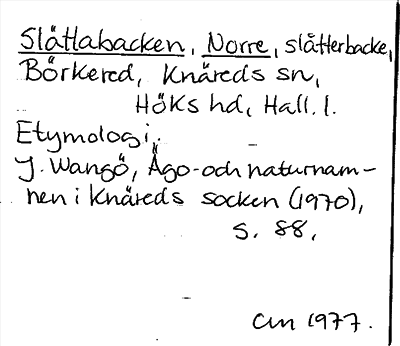 Slåttabacken, Norre, slåtterbacke,
Börkered, Knäreds sn,
Höks hd, Hall. l.
Etymologi.
J. Wangö, Ägo- och naturnam-
nen i Knäreds socken (1970),
s. 88.
CM 1977.